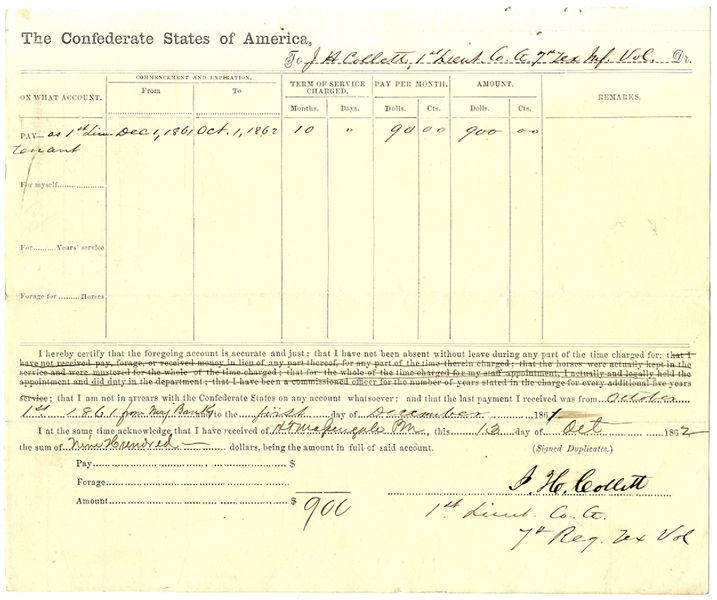 The Confederate States of America,
To J. H. Collett, 1st Lieut. Co. G. 7th Tex Inf. Vol. Dr.
ON WHAT ACCOUNT.
COMMENCEMENT AND EXPIRATION.
From
To
TERM OF SERVICE CHARGED.
Months.
Days.
PAY PER MONTH.
Dolls.
Cts.
AMOUNT.
Dolls.
Cts.
REMARKS.
PAY—as 1st Lieu- Dec 1, 1861 Oct. 1, 1862 10 " 90 00 900 00
tenant
For myself
For.......... Years' service
Forage for ......... Horses
I hereby certify that the foregoing account is accurate and just; that I have not been absent without leave during any part of the time charged for; that I
have not received pay, forage, or received money in lieu of any part thereof, for any part of the time therein charged; that the horses were actually kept in the
service and were mustered for the whole of the time charged; that for the whole of the time charged for my staff appointment, I actually and legally held the
appointment and did duty in the department; that I have been a commissioned officer for the number of years stated in the charge for every additional five years
service; that I am not in arrears with the Confederate States on any account whatsoever; and that the last payment I received was from October
1st 1861 from Maj Banks to the first day of December 1861
I at the same time acknowledge that I have received of PM, this 13 day of Oct 1862
the sum of Nine Hundred — dollars, being the amount in full of said account. (Signed Duplicates.)
Pay $
Forage
Amount $ 900
J. H. Collett
1st Lieut. Co. G.
7th Reg. Tex Vol